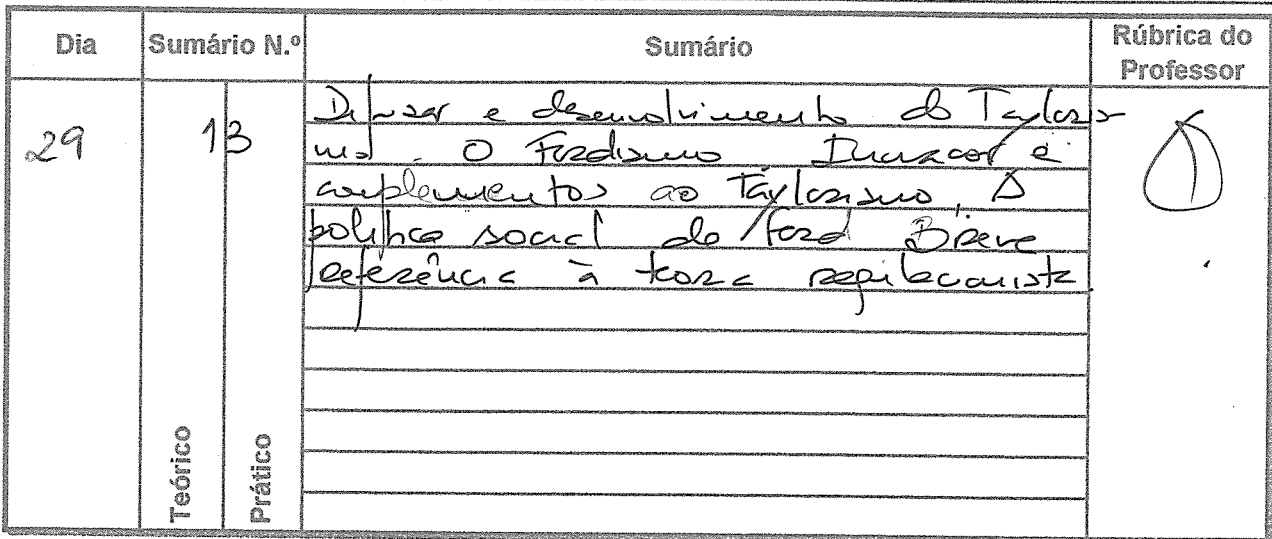 Dia
Sumário N.º
Sumário
Rúbrica do
Professor
29
13
Difusão e desenvolvimento do Tayloris-
mo. O Fordismo Inovações e
complementos ao Taylorismo. A
política social de Ford Breve
referência à teoria regulacionista
Teórico
Prático